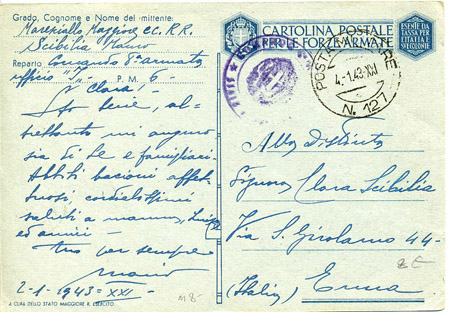 Grado, Cognome e Nome del mittente:
Maresciallo Maggiore CC. R.R.
Scibilia Mauro
Reparto Comando 8ª armata
ufficio "
P. M. 6
Clara!
Sto bene, al-
trettanto mi auguro
sia di te e famigliari
bacioni affet-
tuosi, cordialissimi
saluti a mamma,
ed amici -
tuo per sempre
Mauro
2-1-1943=XXI=
A CURA DELLO STATO MAGGIORE R. ESERCITO.
CARTOLINA POSTALE
PER LE FORZE ARMATE
ESENTE DA
TASSA PER
L'ITALIA E
LE COLONIE
POSTA
4.1.43.XXI
N. 121
Alla Distinta
Signora Clara Scibilia
Via S. Girolamo 44-
(Italia) Enna